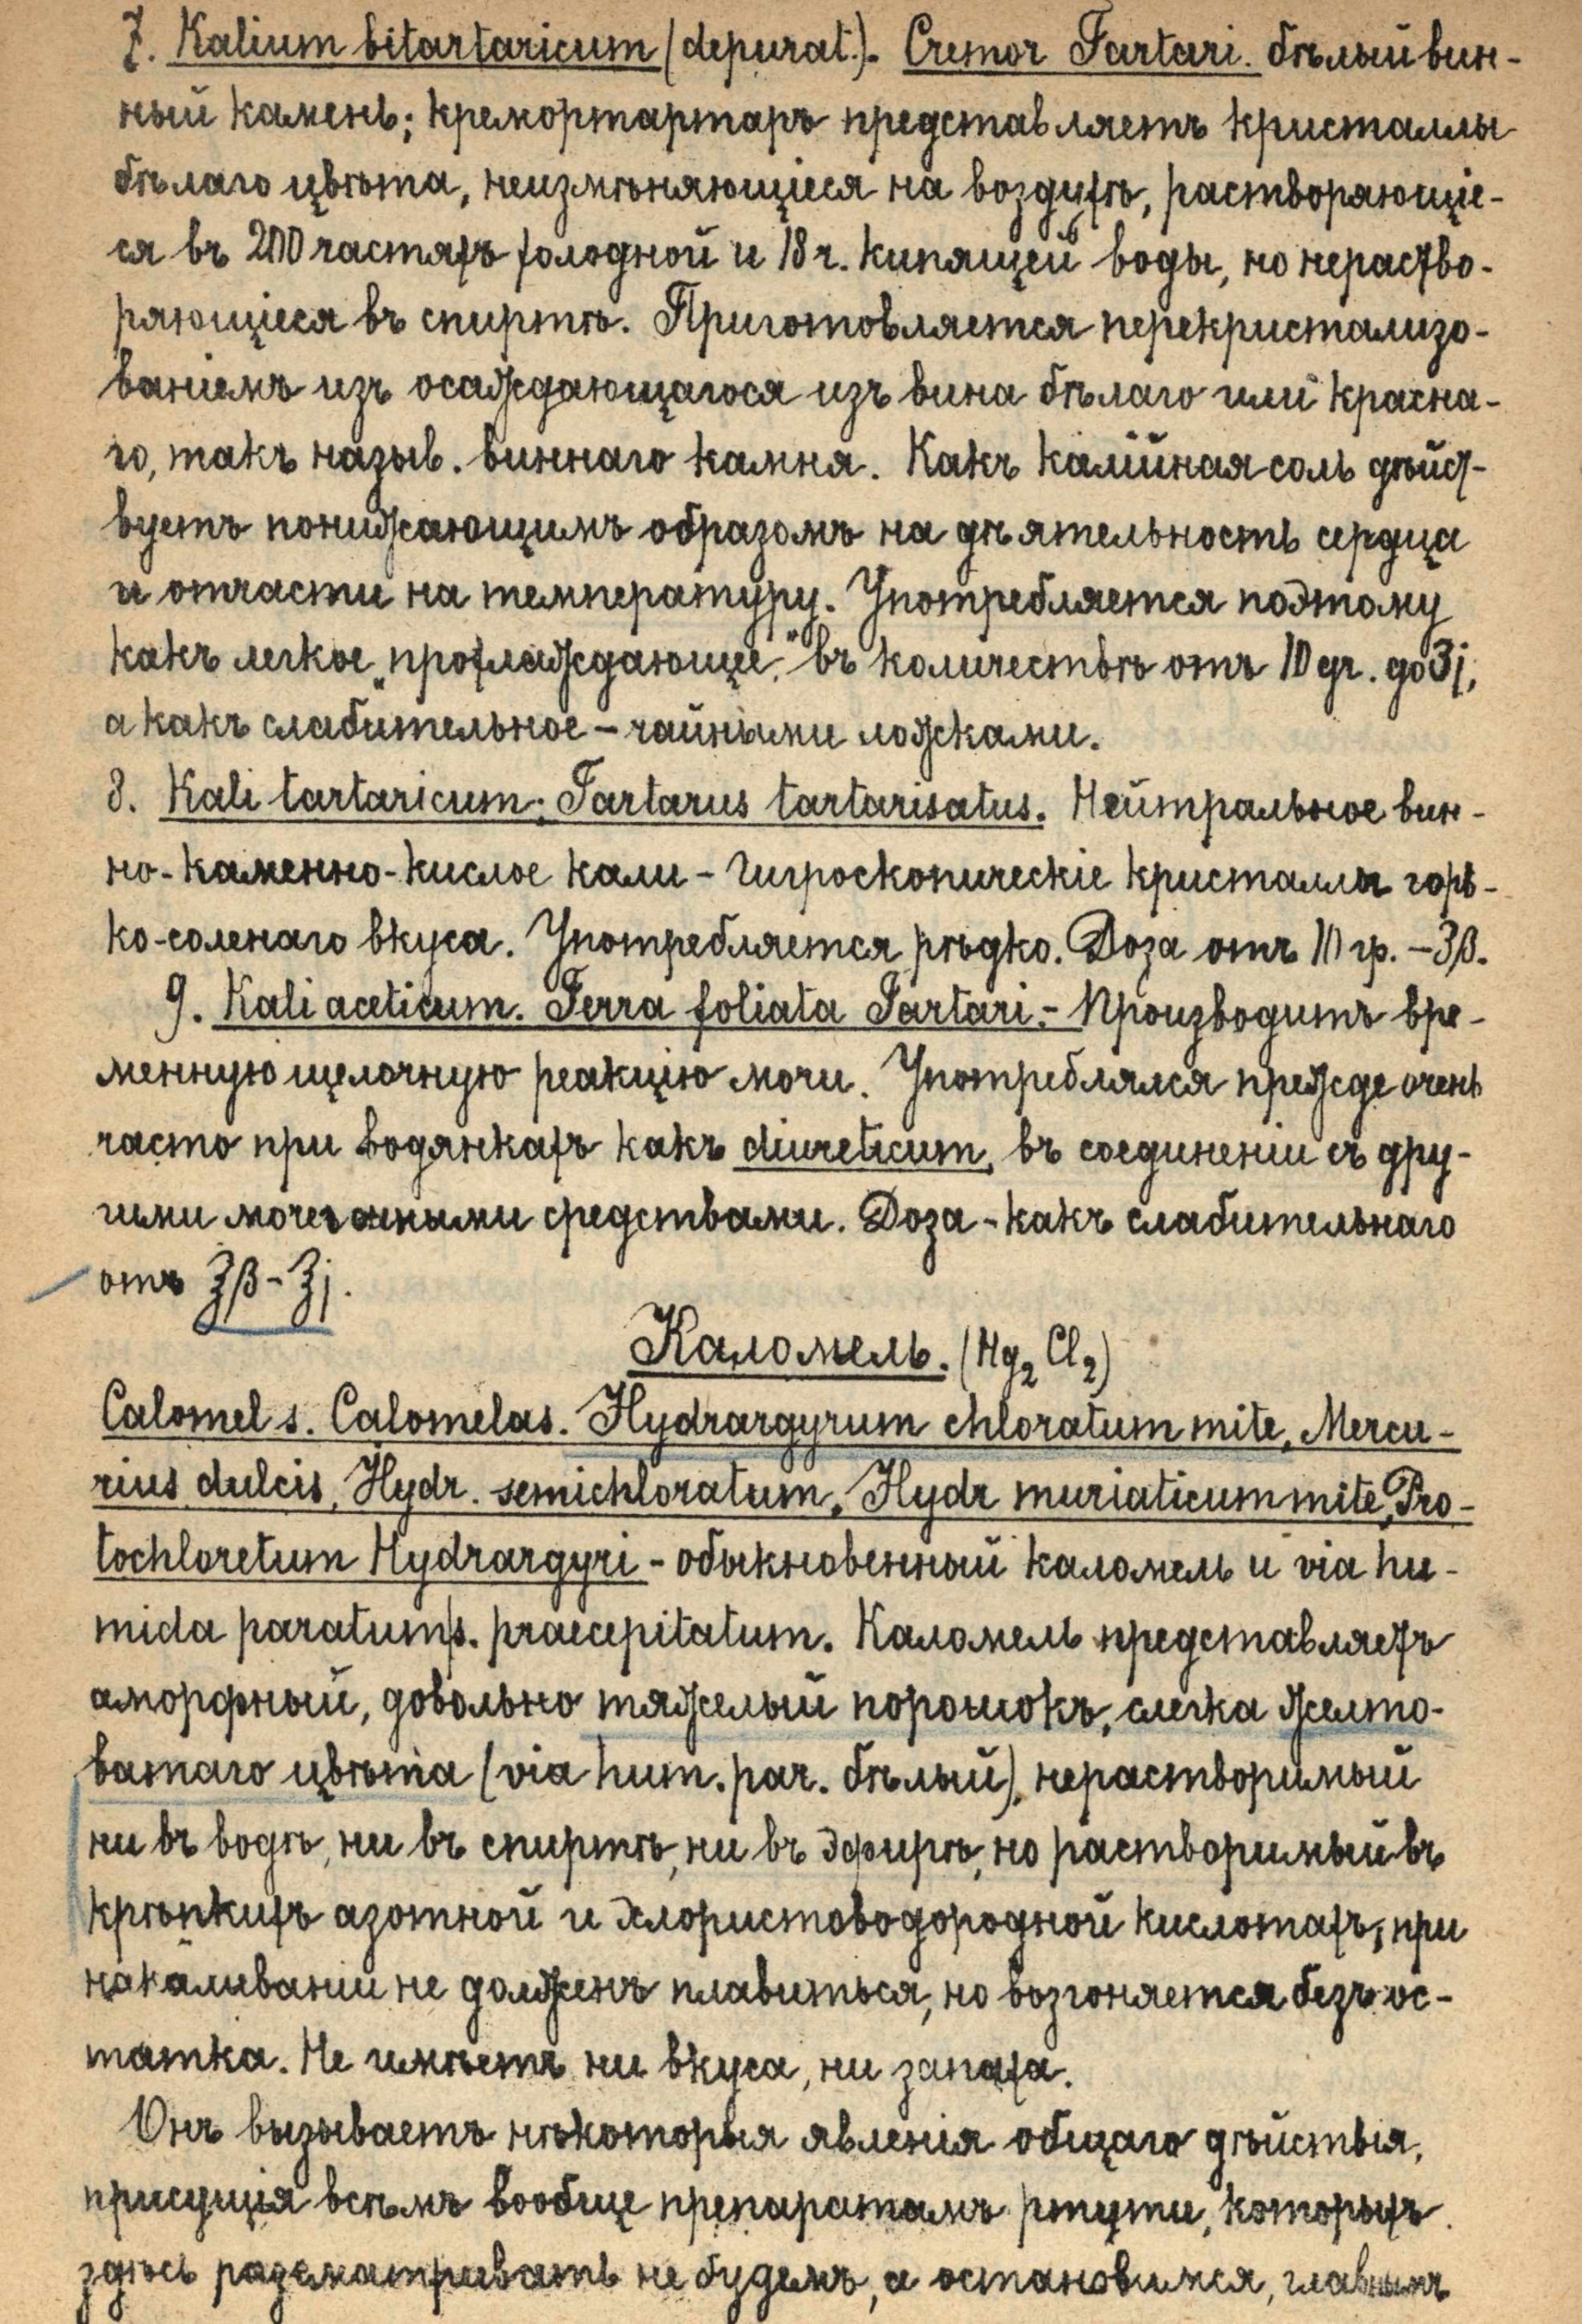 7. Kalium bitartaricum (depurat.). Cremor Tartari. бѣлый вин-
ный камень; кремортартаръ представляетъ кристаллы
бѣлаго цвѣта, неизмѣняющіеся на воздухѣ, растворяющіе-
ся въ 200 частяхъ холодной и 18 ч. кипящей воды, но нераство-
ряющіеся въ спиртѣ. Приготовляется перекристализо-
ваніемъ изъ осаждающагося изъ вина бѣлаго или красна-
го, такъ назыв. виннаго камня. Какъ калійная соль дѣйст-
вуетъ понижающимъ образомъ на дѣятельность сердца
и отчасти на температуру. Употребляется поэтому
какъ легкое „прохлаждающее," въ количествѣ отъ 10 gr. до ʒj,
а какъ слабительное – чайными ложками.
8. Kali tartaricum; Tartarus tartarisatus. Нейтральное вин-
но-каменно-кислое кали – Гигроскопическіе кристаллы горь-
ко-соленаго вкуса. Употребляется рѣдко. Доза отъ 10 гр. – ʒβ.
9. Kali aceticum. Terra foliata Tartari. – Производитъ вре-
менную щелочную реакцію мочи. Употреблялся прежде очень
часто при водянкахъ какъ diureticum, въ соединеніи съ дру-
гими мочегонными средствами. Доза – какъ слабительнаго
отъ ℥β – ℥j.
Каломель. (Hg₂ Cl₂)
Calomel s. Calomelas. Hydrargyrum chloratum mite, Mercu-
rius dulcis, Hydr. semichloratum, Hydr muriaticum mite, Pro-
tochloretum Hydrargyri – обыкновенный каломель и via hu-
mida paratum s. praecepitatum. Каломель представляетъ
аморфный, довольно тяжелый порошокъ, слегка желто-
ватаго цвѣта (via hum. par. бѣлый), нерастворимый
ни въ водѣ, ни въ спиртѣ, ни въ эфирѣ, но растворимый въ
крѣпкихъ азотной и хлористоводородной кислотахъ; при
накаливаніи не долженъ плавиться, но возгоняется безъ ос-
татка. Не имѣетъ ни вкуса, ни запаха.
Онъ вызываетъ нѣкоторыя явленія общаго дѣйствія,
присущія всѣмъ вообще препаратамъ ртути, которыхъ
здѣсь разсматривать не будемъ, а остановимся, главнымъ